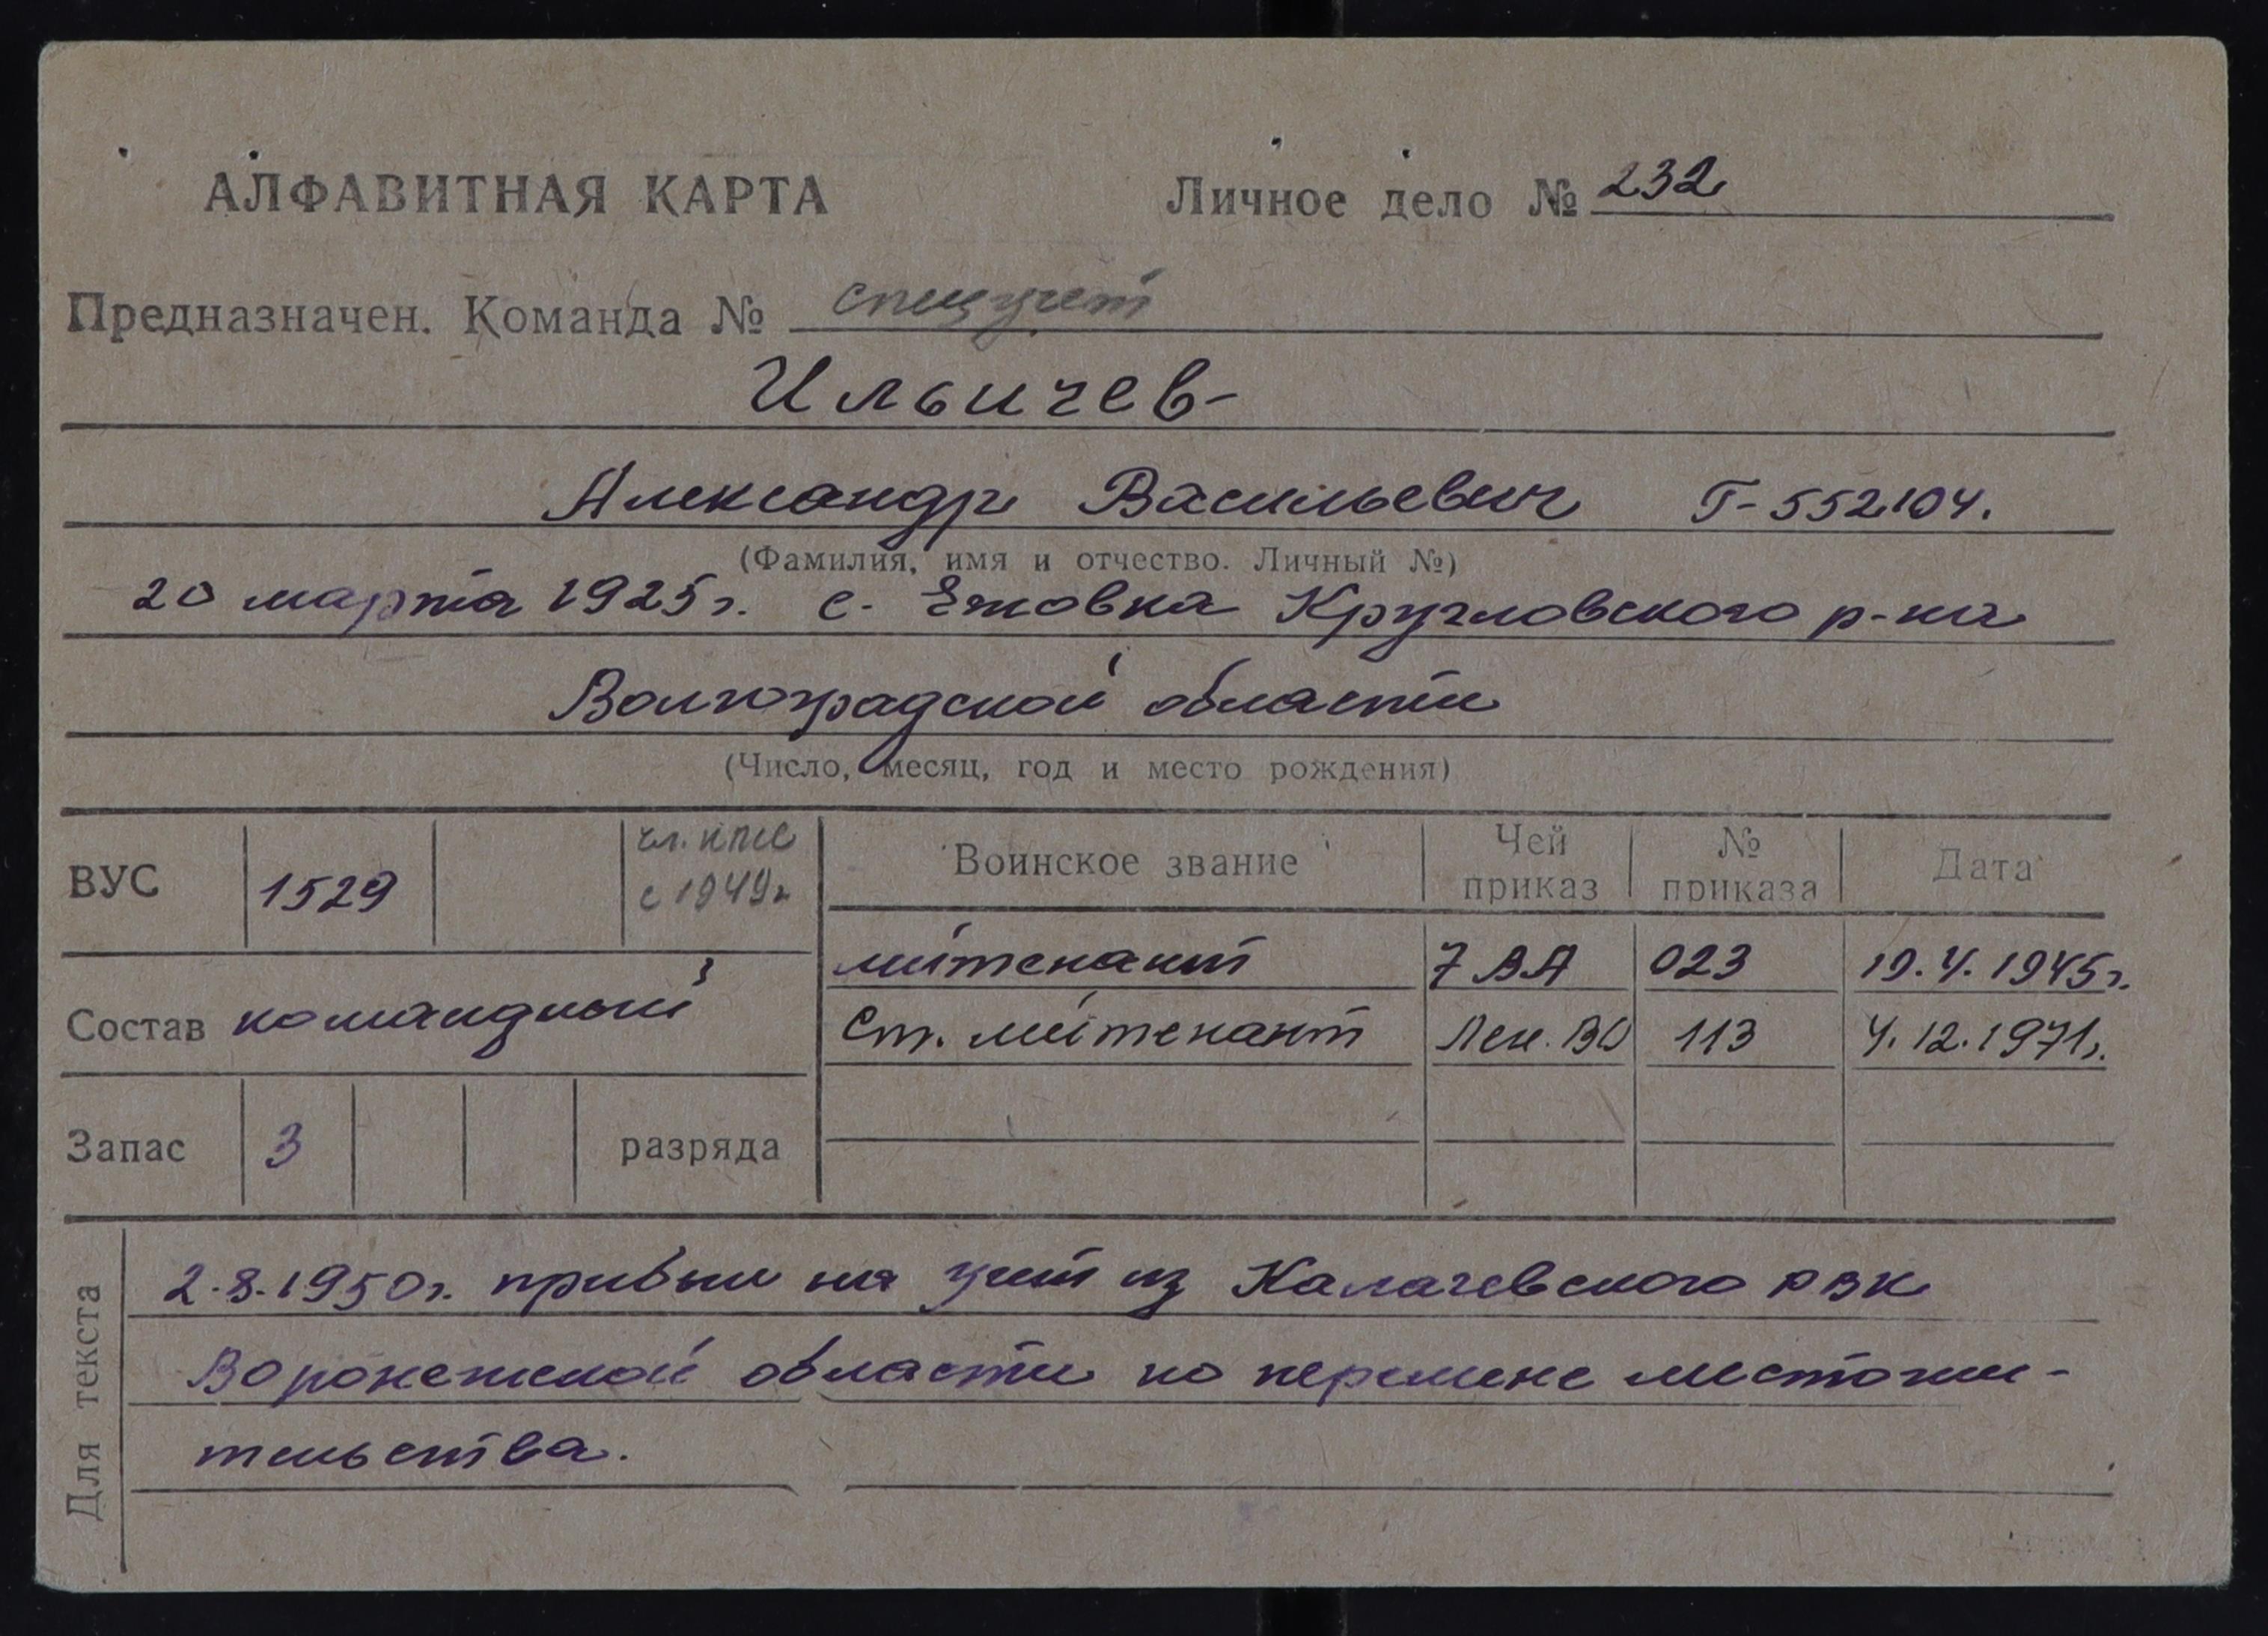 АЛФАВИТНАЯ КАРТА Личное дело № 232
Предназначен. Команда № спецучет
Ильичев
Александр Васильевич Г-552104.
(Фамилия, имя и отчество. Личный №)
20 марта 1925 г. с. Ежовка Кругловского р-на
Волгоградской области
(Число, месяц, год и место рождения)
ВУС 1529 чл. КПСС с 1949 г
Воинское звание Чей приказ № приказа Дата
лейтенант 7 ВА 023 19.4.1945 г.
Состав командный
Ст. лейтенант Лен. ВО 113 4.12.1971 г.
Запас 3 разряда
Для текста
2.8.1950 г. прибыл на учет из Калачевского РВК
Воронежской области по перемене местожи-
тельства.